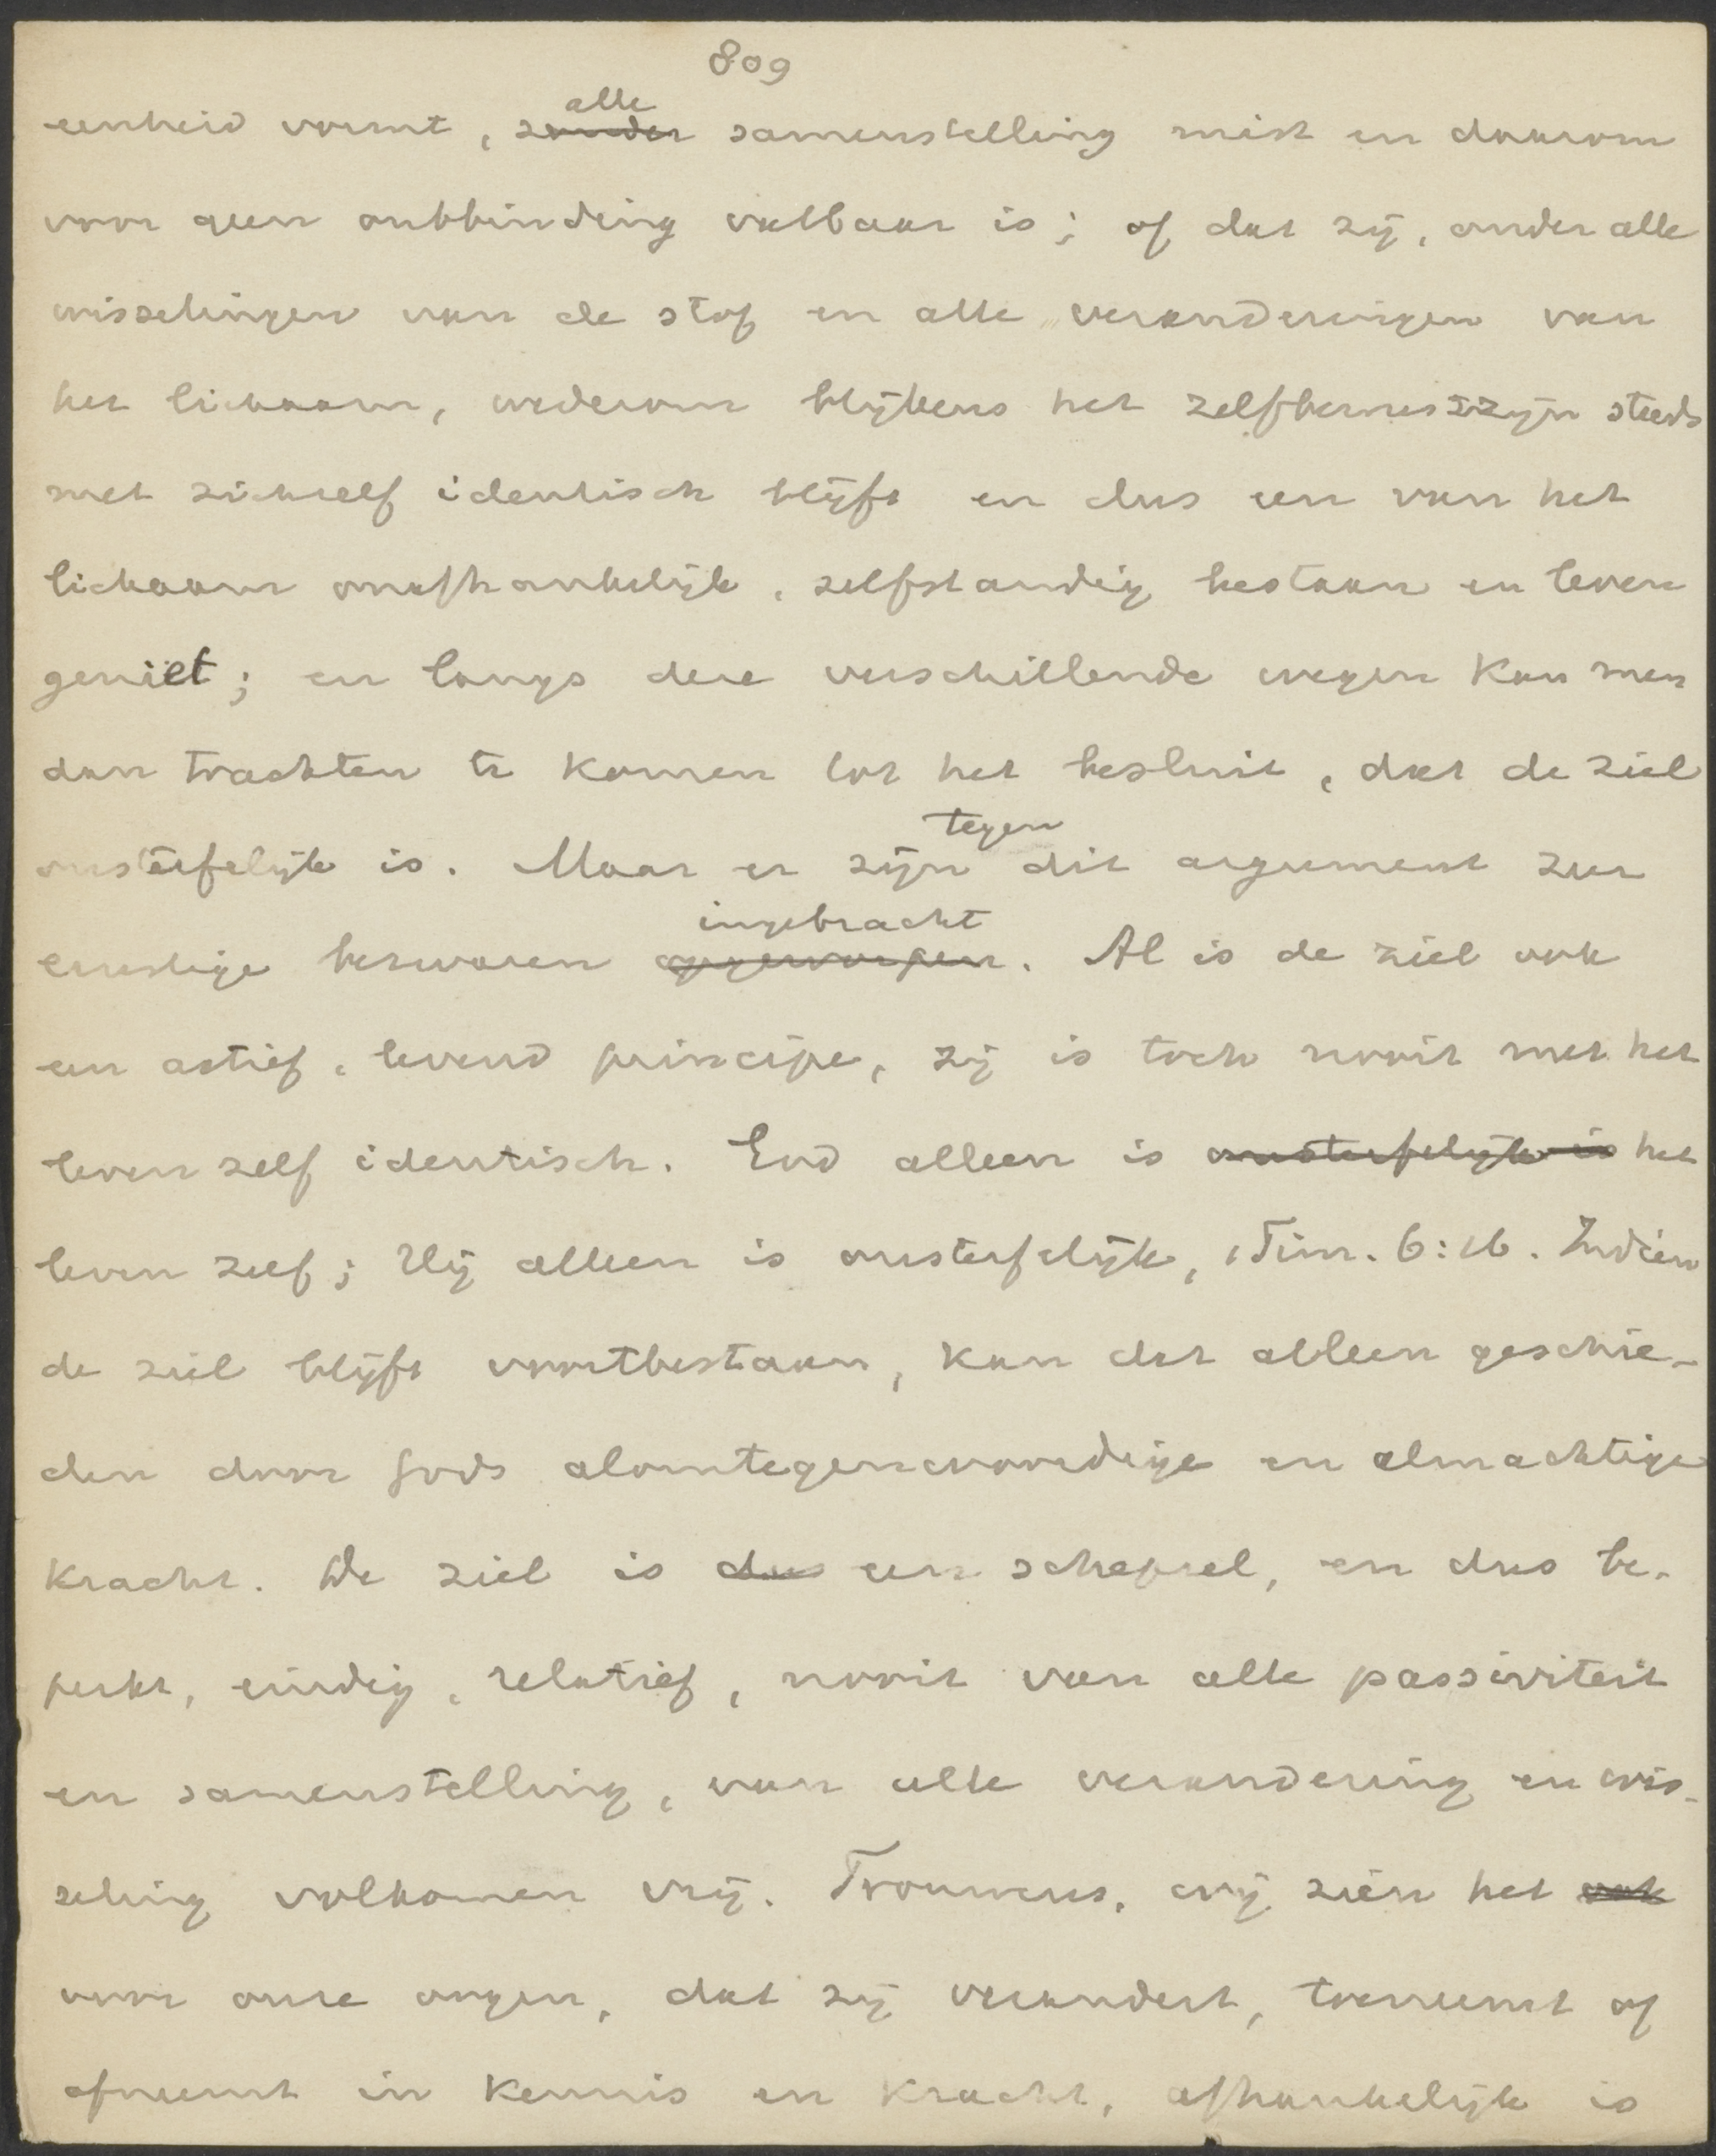 809
eenheid vormt, ~~zonder~~ alle samenstelling mist en daarom
voor geen ontbinding vatbaar is; of dat zij, onder alle
wisselingen van de stof en alle veranderingen van
het lichaam, wederom blijkens het zelfbewustzijn steeds
met zichzelf identisch blijft en dus een van het
lichaam onafhankelijk, zelfstandig bestaan en leven
geniet; en langs deze verschillende wegen kan men
dan trachten te komen tot het besluit, dat de ziel
onsterfelijk is. Maar er zijn tegen dit argument zeer
ernstige bezwaren ~~opgeworpen~~ ingebracht. Al is de ziel ook
een actief, levend principe, zij is toch nooit met het
leven zelf identisch. God alleen is ~~onsterfelijk is~~ het
leven zelf; Hij alleen is onsterfelijk, 1 Tim. 6:16. Indien
de ziel blijft voortbestaan, kan dat alleen geschie-
den door Gods alomtegenwoordige en almachtige
kracht. De ziel is ~~dus~~ een schepsel, en dus be-
perkt, eindig, relatief, nooit van alle passiviteit
en samenstelling, van alle verandering en wis-
seling volkomen vrij. Trouwens, wij zien het ~~ook~~
voor onze oogen, dat zij verandert, toeneemt of
afneemt in kennis en kracht, afhankelijk is